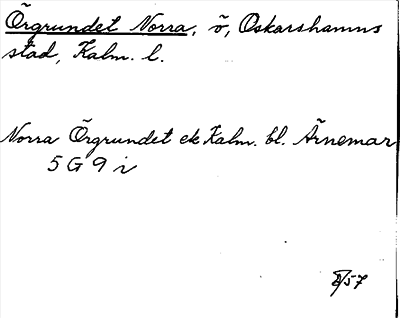 Örgrundet Norra, ö, Oskarshamns
stad, Kalm. l.
Norra Örgrundet ek Kalm. bl. Ärnemar
5 G 9 i
/57